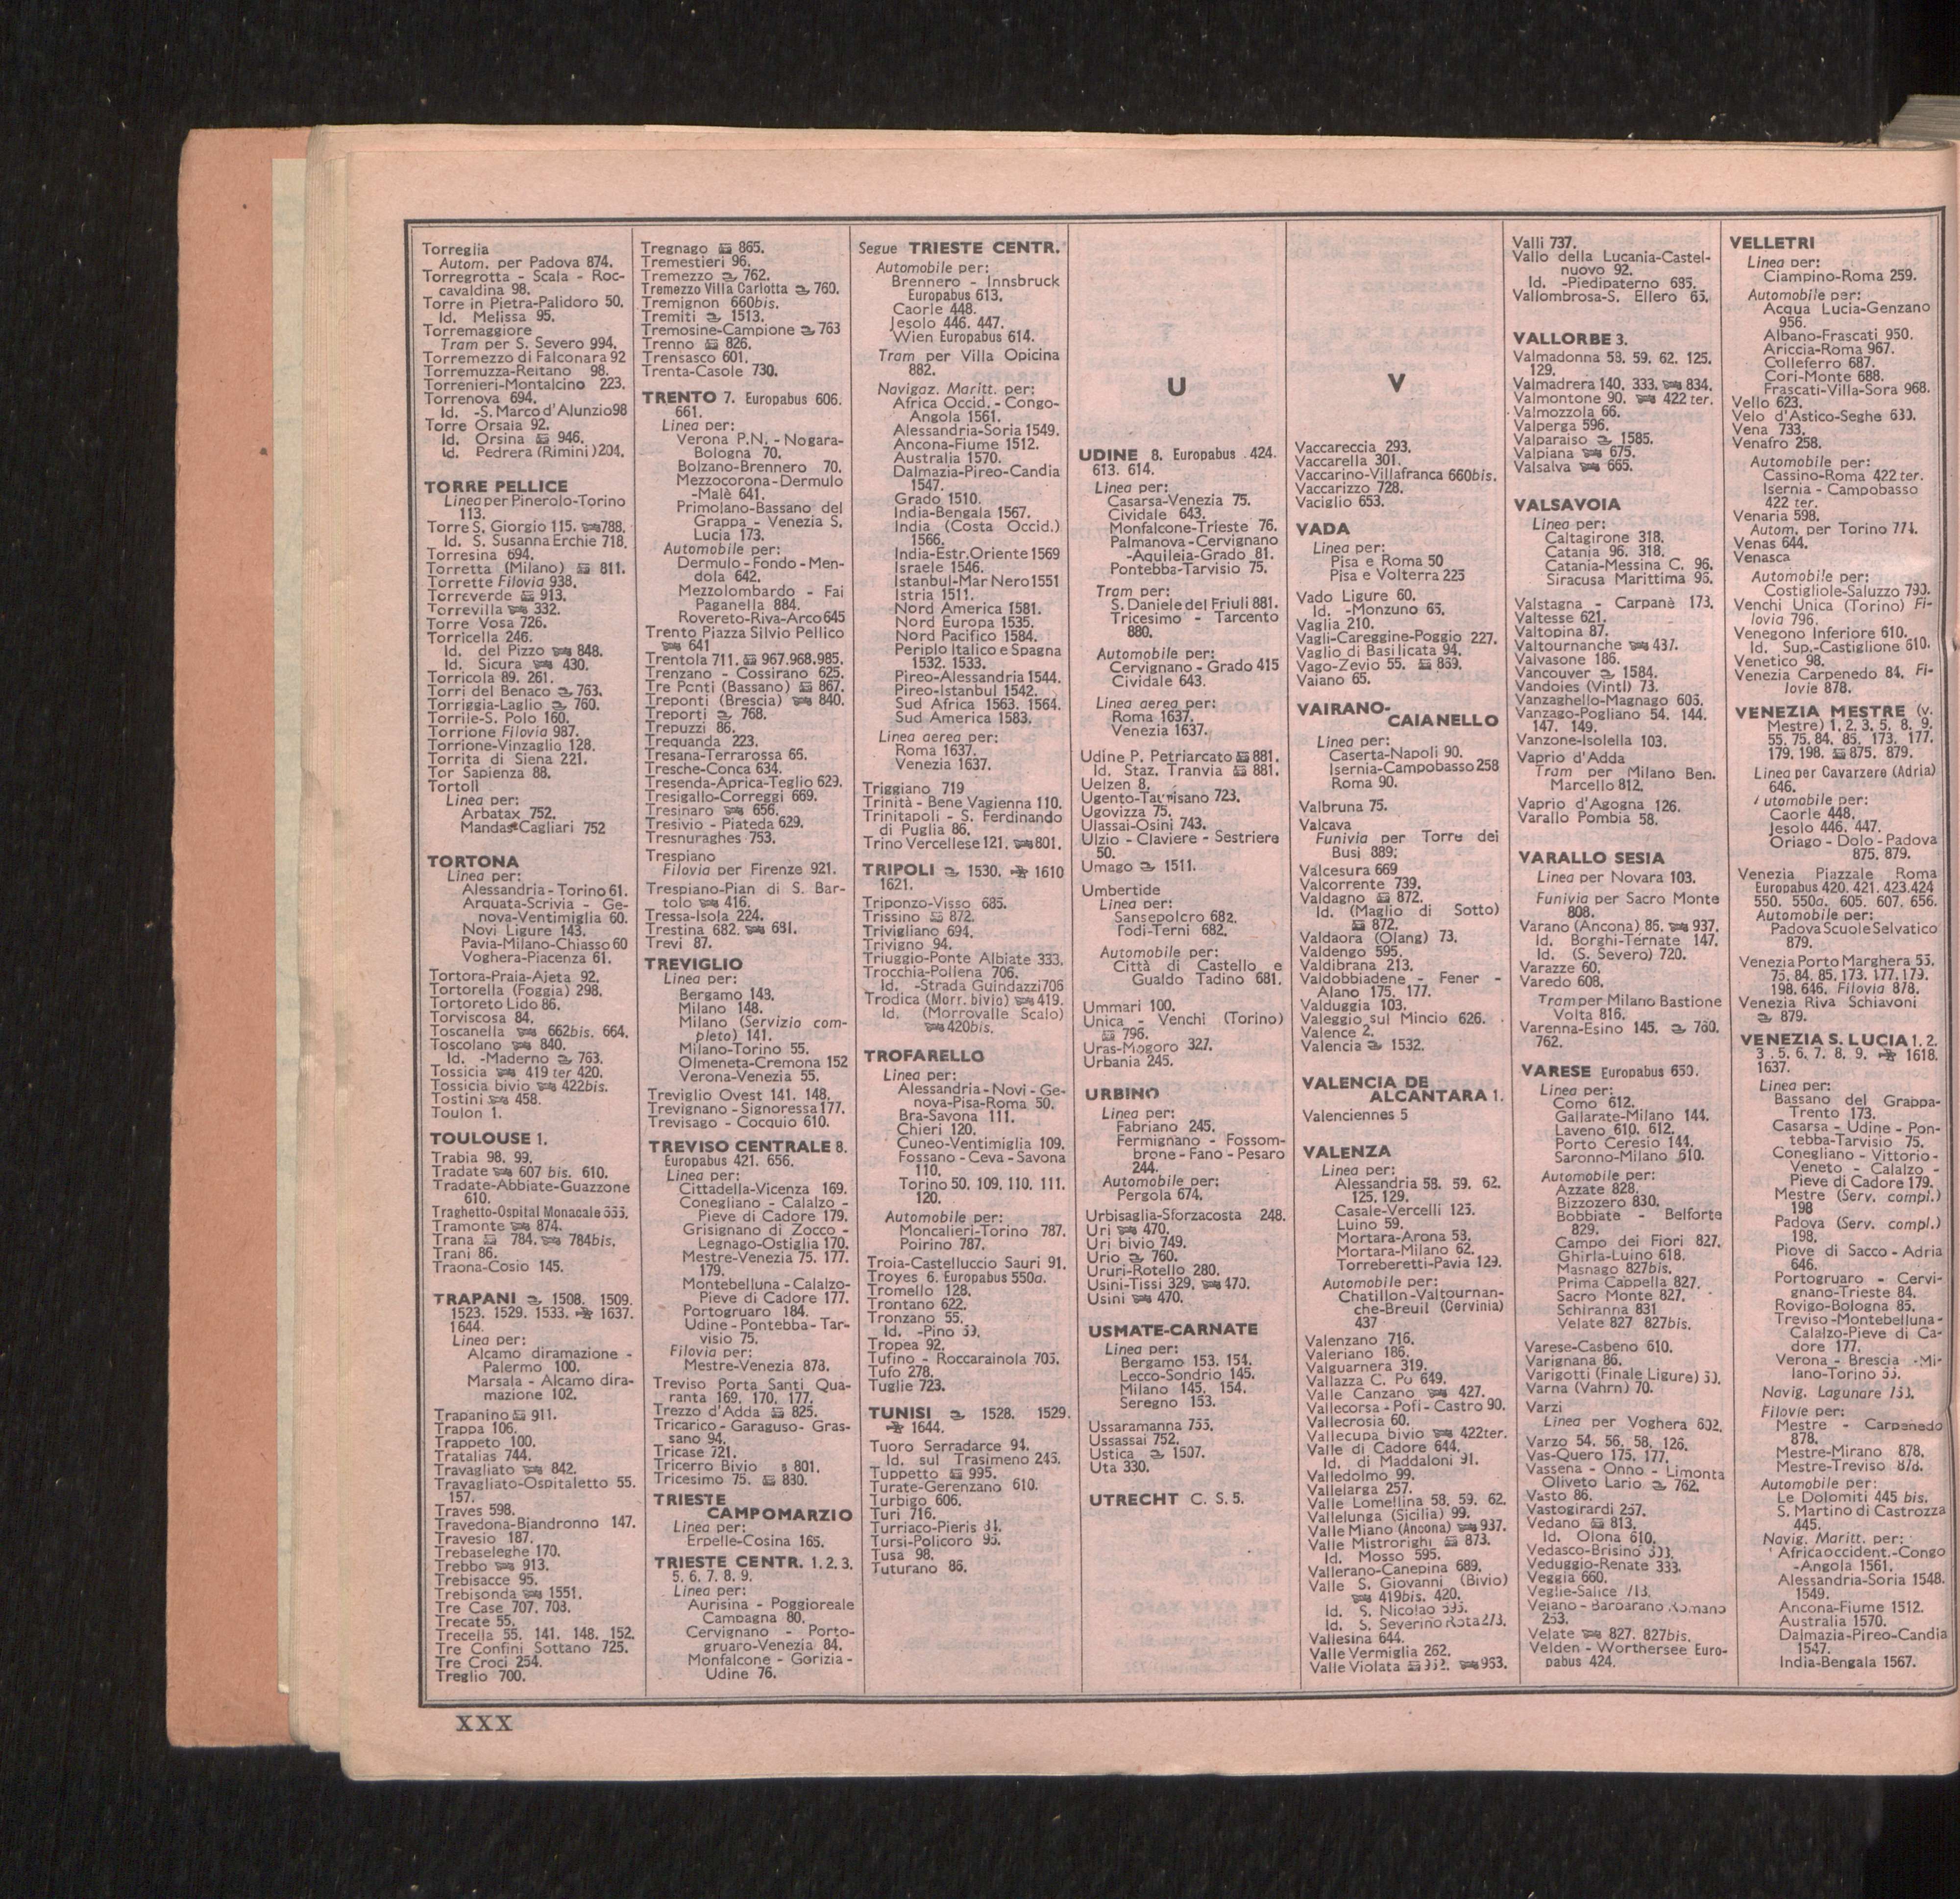 Torreglia
Autom. per Padova 874.
Torregrotta - Scala - Roc-
cavaldina 98.
Torre in Pietra-Palidoro 50.
Id. Melissa 95.
Torremaggiore
Tram per S. Severo 994.
Torremezzo di Falconara 92
Torremuzza-Reitano 98.
Torrenieri-Montalcino 223.
Torrenova 694.
Id. -S. Marco d'Alunzio 98
Torre Orsaia 92.
Id. Orsina 946.
Id. Pedrera (Rimini) 204.
TORRE PELLICE
Linea per Pinerolo-Torino
113.
Torre S. Giorgio 115. 788.
Id. S. Susanna Erchie 718.
Torresina 694.
Torretta (Milano) 811.
Torrette Filovia 938.
Torreverde 913.
Torrevilla 332.
Torre Vosa 726.
Torricella 246.
Id. del Pizzo 848.
Id. Sicura 430.
Torricola 89. 261.
Torri del Benaco 763.
Torriggia-Laglio 760.
Torrile-S. Polo 160.
Torrione Filovia 987.
Torrione-Vinzaglio 128.
Torrita di Siena 221.
Tor Sapienza 88.
Tortolì
Linea per:
Arbatax 752.
Mandas-Cagliari 752
TORTONA
Linea per:
Alessandria - Torino 61.
Arquata-Scrivia - Ge-
nova-Ventimiglia 60.
Novi Ligure 143.
Pavia-Milano-Chiasso 60
Voghera-Piacenza 61.
Tortora-Praia-Ajeta 92.
Tortorella (Foggia) 298.
Tortoreto Lido 86.
Torviscosa 84.
Toscanella 662bis. 664.
Toscolano 840.
Id. -Maderno 763.
Tossicia 419 ter 420.
Tossicia bivio 422bis.
Tostini 458.
Toulon 1.
TOULOUSE 1.
Trabia 98. 99.
Tradate 607 bis. 610.
Tradate-Abbiate-Guazzone
610.
Traghetto-Ospital Monacale
Tramonte 874.
Trana 784. 784bis.
Trani 86.
Traona-Cosio 145.
TRAPANI 1508. 1509.
1523. 1529. 1533. 1637.
1644.
Linea per:
Alcamo diramazione -
Palermo 100.
Marsala - Alcamo dira-
mazione 102.
Trapanino 911.
Trappa 106.
Trappeto 100.
Tratalias 744.
Travagliato 842.
Travagliato-Ospitaletto 55.
157.
Traves 598.
Travedona-Biandronno 147.
Travesio 187.
Trebaseleghe 170.
Trebbo 913.
Trebisacce 95.
Trebisonda 1551.
Tre Case 707. 708.
Trecate 55.
Trecella 55. 141. 148. 152.
Tre Confini Sottano 725.
Tre Croci 254.
Treglio 700.
Tregnago 865.
Tremestieri 96.
Tremezzo 762.
Tremezzo Villa Carlotta 760.
Tremignon 660bis.
Tremiti 1513.
Tremosine-Campione 763
Trenno 826.
Trensasco 601.
Trenta-Casole 730.
TRENTO 7. Europabus 606.
661.
Linea per:
Verona P.N. - Nogara-
Bologna 70.
Bolzano-Brennero 70.
Mezzocorona-Dermulo
-Malè 641.
Primolano-Bassano del
Grappa - Venezia S.
Lucia 173.
Automobile per:
Dermulo - Fondo - Men-
dola 642.
Mezzolombardo - Fai
Paganella 884.
Rovereto-Riva-Arco 645
Trento Piazza Silvio Pellico
641
Trentola 711. 967. 968. 985.
Trenzano - Cossirano 625.
Tre Ponti (Bassano) 867.
Treponti (Brescia) 840.
Treporti 768.
Trepuzzi 86.
Trequanda 223.
Tresana-Terrarossa 66.
Tresche-Conca 634.
Tresenda-Aprica-Teglio 629.
Tresigallo-Correggi 669.
Tresinaro 656.
Tresivio - Piateda 629.
Tresnuraghes 753.
Trespiano
Filovia per Firenze 921.
Trespiano-Pian di S. Bar-
tolo 416.
Tressa-Isola 224.
Trestina 682. 681.
Trevi 87.
TREVIGLIO
Linea per:
Bergamo 148.
Milano 148.
Milano (Servizio com-
pleto) 141.
Milano-Torino 55.
Olmeneta-Cremona 152
Verona-Venezia 55.
Treviglio Ovest 141. 148.
Trevignano - Signoressa 177.
Trevisago - Cocquio 610.
TREVISO CENTRALE 8.
Europabus 421. 656.
Linea per:
Cittadella-Vicenza 169.
Conegliano - Calalzo -
Pieve di Cadore 179.
Grisignano di Zocco -
Legnago-Ostiglia 170.
Mestre-Venezia 75. 177.
179.
Montebelluna - Calalzo-
Pieve di Cadore 177.
Portogruaro 184.
Udine - Pontebba - Tar-
visio 75.
Filovia per:
Mestre-Venezia 878.
Treviso Porta Santi Qua-
ranta 169. 170. 177.
Trezzo d'Adda 825.
Tricarico - Garaguso - Gras-
sano 94.
Tricase 721.
Tricerro Bivio 801.
Tricesimo 75. 880.
TRIESTE
CAMPOMARZIO
Linea per:
Erpelle-Cosina 165.
TRIESTE CENTR. 1. 2. 3.
5. 6. 7. 8. 9.
Linea per:
Aurisina - Poggioreale
Campagna 80.
Cervignano - Porto-
gruaro-Venezia 84.
Monfalcone - Gorizia -
Udine 76.
Segue TRIESTE CENTR.
Automobile per:
Brennero - Innsbruck
Europabus 613.
Caorle 448.
Jesolo 446. 447.
Wien Europabus 614.
Tram per Villa Opicina
882.
Navigaz. Maritt. per:
Africa Occid. - Congo-
Angola 1561.
Alessandria-Soria 1549.
Ancona-Fiume 1512.
Australia 1570.
Dalmazia-Pireo-Candia
1547.
Grado 1510.
India-Bengala 1567.
India (Costa Occid.)
1566.
India-Estr. Oriente 1569
Israele 1546.
Istanbul-Mar Nero 1551
Istria 1511.
Nord America 1581.
Nord Europa 1535.
Nord Pacifico 1584.
Periplo Italico e Spagna
1532. 1533.
Pireo-Alessandria 1544.
Pireo-Istanbul 1542.
Sud Africa 1563. 1564.
Sud America 1583.
Linea aerea per:
Roma 1637.
Venezia 1637.
Triggiano 719
Trinità - Bene Vagienna 110.
Trinitapoli - S. Ferdinando
di Puglia 86.
Trino Vercellese 121. 801.
TRIPOLI 1530. 1610
1621.
Triponzo-Visso 685.
Trissino 872.
Trivigliano 694.
Trivigno 94.
Triuggio-Ponte Albiate 333.
Trocchia-Pollena 706.
Id. -Strada Guindazzi 706
Trodica (Morr. bivio) 419.
Id. (Morrovalle Scalo)
420bis.
TROFARELLO
Linea per:
Alessandria - Novi - Ge-
nova-Pisa-Roma 50.
Bra-Savona 111.
Chieri 120.
Cuneo-Ventimiglia 109.
Fossano - Ceva - Savona
110.
Torino 50. 109. 110. 111.
120.
Automobile per:
Moncalieri-Torino 787.
Poirino 787.
Troia-Castelluccio Sauri 91.
Troyes 6. Europabus 550a.
Tromello 128.
Trontano 622.
Tronzano 55.
Id. -Pino
Tropea 92.
Tufino - Roccarainola 705.
Tufo 278.
Tuglie 723.
TUNISI 1528. 1529.
1644.
Tuoro Serradarce 94.
Id. sul Trasimeno 245.
Tuppetto 995.
Turate-Gerenzano 610.
Turbigo 606.
Turi 716.
Turriaco-Pieris
Tursi-Policoro 95.
Tusa 98.
Tuturano 86.
U
UDINE 8. Europabus 424.
613. 614.
Linea per:
Casarsa-Venezia 75.
Cividale 643.
Monfalcone-Trieste 76.
Palmanova-Cervignano
-Aquileia-Grado 81.
Pontebba-Tarvisio 75.
Tram per:
S. Daniele del Friuli 881.
Tricesimo - Tarcento
880.
Automobile per:
Cervignano - Grado 415
Cividale 643.
Linea aerea per:
Roma 1637.
Venezia 1637.
Udine P. Petriarcato 881.
Id. Staz. Tranvia 881.
Uelzen 8.
Ugento-Taurisano 723.
Ugovizza 75.
Ulassai-Osini 743.
Ulzio - Claviere - Sestriere
50.
Umago 1511.
Umbertide
Linea per:
Sansepolcro 682.
Todi-Terni 682.
Automobile per:
Città di Castello e
Gualdo Tadino 681.
Ummari 100.
Unica - Venchi (Torino)
796.
Uras-Mogoro 327.
Urbania 245.
URBINO
Linea per:
Fabriano 245.
Fermignano - Fossom-
brone - Fano - Pesaro
244.
Automobile per:
Pergola 674.
Urbisaglia-Sforzacosta 248.
Uri 470.
Uri bivio 749.
Urio 760.
Ururi-Rotello 280.
Usini-Tissi 329. 470.
Usini 470.
USMATE-CARNATE
Linea per:
Bergamo 153. 154.
Lecco-Sondrio 145.
Milano 145. 154.
Seregno 153.
Ussaramanna 755.
Ussassai 752.
Ustica 1507.
Uta 330.
UTRECHT C. S. 5.
V
Vaccareccia 293.
Vaccarella 301.
Vaccarino-Villafranca 660bis.
Vaccarizzo 728.
Vaciglio 653.
VADA
Linea per:
Pisa e Roma 50
Pisa e Volterra 225
Vado Ligure 60.
Id. -Monzuno 65.
Vaglia 210.
Vagli-Careggine-Poggio 227.
Vaglio di Basilicata 94.
Vago-Zevio 55. 859.
Vaiano 65.
VAIRANO-
CAIANELLO
Linea per:
Caserta-Napoli 90.
Isernia-Campobasso 258
Roma 90.
Valbruna 75.
Valcava
Funivia per Torre dei
Busi 889;
Valcesura 669
Valcorrente 739.
Valdagno 872.
Id. (Maglio di Sotto)
872.
Valdaora (Olang) 73.
Valdengo 595.
Valdibrana 213.
Valdobbiadene - Fener -
Alano 175. 177.
Valduggia 103.
Valeggio sul Mincio 626.
Valence 2.
Valencia 1532.
VALENCIA DE
ALCANTARA 1.
Valenciennes 5
VALENZA
Linea per:
Alessandria 58. 59. 62.
125. 129.
Casale-Vercelli 125.
Luino 59.
Mortara-Arona 53.
Mortara-Milano 62.
Torreberetti-Pavia 129.
Automobile per:
Chatillon-Valtournan-
che-Breuil (Cervinia)
437
Valenzano 716.
Valeriano 186.
Valguarnera 319.
Vallazza C. Po 649.
Valle Canzano 427.
Vallecorsa - Pofi - Castro 90.
Vallecrosia 60.
Vallecupa bivio 422ter.
Valle di Cadore 644.
Id. di Maddaloni 91.
Valledolmo 99.
Vallelarga 257.
Valle Lomellina 58. 59. 62.
Vallelunga (Sicilia) 99.
Valle Miano (Ancona) 937.
Valle Mistrorighi 873.
Id. Mosso 595.
Vallerano-Canepina 689.
Valle S. Giovanni (Bivio)
419bis. 420.
Id. S. Nicolao 595.
Id. S. Severino Rota 273.
Vallesina 644.
Valle Vermiglia 262.
Valle Violata 952. 953.
Valli 737.
Vallo della Lucania-Castel-
nuovo 92.
Id. -Piedipaterno 685.
Vallombrosa-S. Ellero 65.
VALLORBE 3.
Valmadonna 58. 59. 62. 125.
129.
Valmadrera 140. 333. 834.
Valmontone 90. 422 ter.
Valmozzola 66.
Valperga 596.
Valparaiso 1585.
Valpiana 675.
Valsalva 665.
VALSAVOIA
Linea per:
Caltagirone 318.
Catania 96. 318.
Catania-Messina C. 96.
Siracusa Marittima 96.
Valstagna - Carpanè 173.
Valtesse 621.
Valtopina 87.
Valtournanche 437.
Valvasone 186.
Vancouver 1584.
Vandoies (Vintl) 73.
Vanzaghello-Magnago 605.
Vanzago-Pogliano 54. 144.
147. 149.
Vanzone-Isolella 103.
Vaprio d'Adda
Tram per Milano Ben.
Marcello 812.
Vaprio d'Agogna 126.
Varallo Pombia 58.
VARALLO SESIA
Linea per Novara 103.
Funivia per Sacro Monte
808.
Varano (Ancona) 86. 937.
Id. Borghi-Ternate 147.
Id. (S. Severo) 720.
Varazze 60.
Varedo 608.
Tram per Milano Bastione
Volta 816.
Varenna-Esino 145. 760.
762.
VARESE Europabus 650.
Linea per:
Como 612.
Gallarate-Milano 144.
Laveno 610. 612.
Porto Ceresio 144.
Saronno-Milano 610.
Automobile per:
Azzate 828.
Bizzozero 830.
Bobbiate - Belforte
829.
Campo dei Fiori 827.
Ghirla-Luino 618.
Masnago 827bis.
Prima Cappella 827.
Sacro Monte 827.
Schiranna 831
Velate 827 827bis.
Varese-Casbeno 610.
Varignana 86.
Varigotti (Finale Ligure)
Varna (Vahrn) 70.
Varzi
Linea per Voghera 602.
Varzo 54. 56. 58. 126.
Vas-Quero 175. 177.
Vassena - Onno - Limonta
Oliveto Lario 762.
Vasto 86.
Vastogirardi 257.
Vedano 813.
Id. Olona 610.
Vedasco-Brisino
Veduggio-Renate 333.
Veggia 660.
Veglie-Salice 713.
Veiano - Barbarano Romano
253.
Velate 827. 827bis.
Velden - Worthersee Euro-
pabus 424.
VELLETRI
Linea per:
Ciampino-Roma 259.
Automobile per:
Acqua Lucia-Genzano
956.
Albano-Frascati 950.
Ariccia-Roma 967.
Colleferro 687.
Cori-Monte 688.
Frascati-Villa-Sora 968.
Vello 623.
Velo d'Astico-Seghe 630.
Vena 733.
Venafro 258.
Automobile per:
Cassino-Roma 422 ter.
Isernia - Campobasso
422 ter.
Venaria 598.
Autom. per Torino 774.
Venas 644.
Venasca
Automobile per:
Costigliole-Saluzzo 790.
Venchi Unica (Torino) Fi-
lovia 796.
Venegono Inferiore 610.
Id. Sup.-Castiglione 610.
Venetico 98.
Venezia Carpenedo 84. Fi-
lovie 878.
VENEZIA MESTRE (v.
Mestre) 1. 2. 3. 5. 8. 9.
55. 75. 84. 85. 173. 177.
179. 198. 875. 879.
Linea per Cavarzere (Adria)
646.
Automobile per:
Caorle 448.
Jesolo 446. 447.
Oriago - Dolo - Padova
875. 879.
Venezia Piazzale Roma
Europabus 420. 421. 423. 424
550. 550a. 605. 607. 656.
Automobile per:
Padova Scuole Selvatico
879.
Venezia Porto Marghera 55.
75. 84. 85. 173. 177. 179.
198. 646. Filovia 878.
Venezia Riva Schiavoni
879.
VENEZIA S. LUCIA 1. 2.
3. 5. 6. 7. 8. 9. 1618.
1637.
Linea per:
Bassano del Grappa-
Trento 173.
Casarsa - Udine - Pon-
tebba-Tarvisio 75.
Conegliano - Vittorio -
Veneto - Calalzo -
Pieve di Cadore 179.
Mestre (Serv. compl.)
198
Padova (Serv. compl.)
198.
Piove di Sacco - Adria
646.
Portogruaro - Cervi-
gnano-Trieste 84.
Rovigo-Bologna 85.
Treviso -Montebelluna-
Calalzo-Pieve di Ca-
dore 177.
Verona - Brescia -Mi-
lano-Torino 55.
Navig. Lagunare
Filovie per:
Mestre - Carpenedo
878.
Mestre-Mirano 878.
Mestre-Treviso 878.
Automobile per:
Le Dolomiti 445 bis.
S. Martino di Castrozza
445.
Navig. Maritt. per:
Africa occident.-Congo
-Angola 1561.
Alessandria-Soria 1548.
1549.
Ancona-Fiume 1512.
Australia 1570.
Dalmazia-Pireo-Candia
1547.
India-Bengala 1567.
XXX